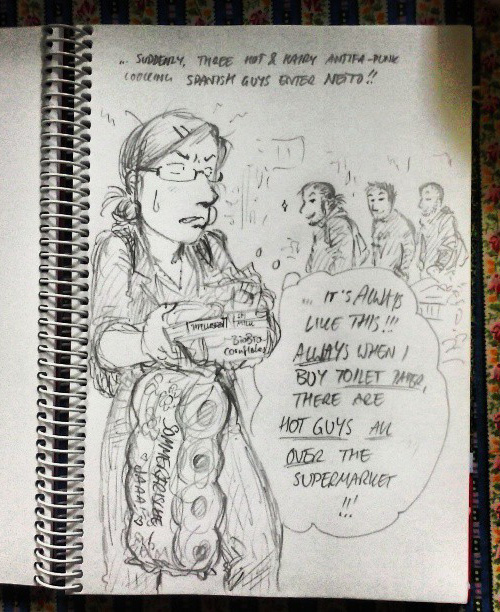 ... SUDDENLY, THREE HOT & HAIRY ANTIFA-PUNK
LOOCKING SPANISH GUYS ENTER NETTO!!
BioBio
Cornflakes
SOMMERFRISCHE
... IT'S ALWAYS
LIKE THIS!!!
ALWAYS WHEN I
BUY TOILET PAPER,
THERE ARE
HOT GUYS ALL
OVER THE
SUPERMARKET
!!!